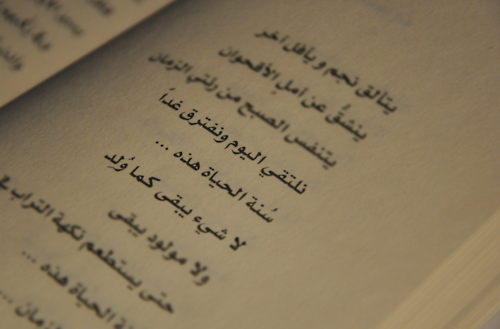 يتألق نجم و يأفل آخر
ينشقُّ عن امل الأقحوان
يتنفس الصبح من رئتي الزمان
نلتقي اليوم ونفترق غداً
سُنة الحياة هذه ...
لا شيء يبقى كما وُلِد
ولا مولود يبقى
حتى يستطعم نكهة التراب في
الحياة هذه ...
الزمان ...